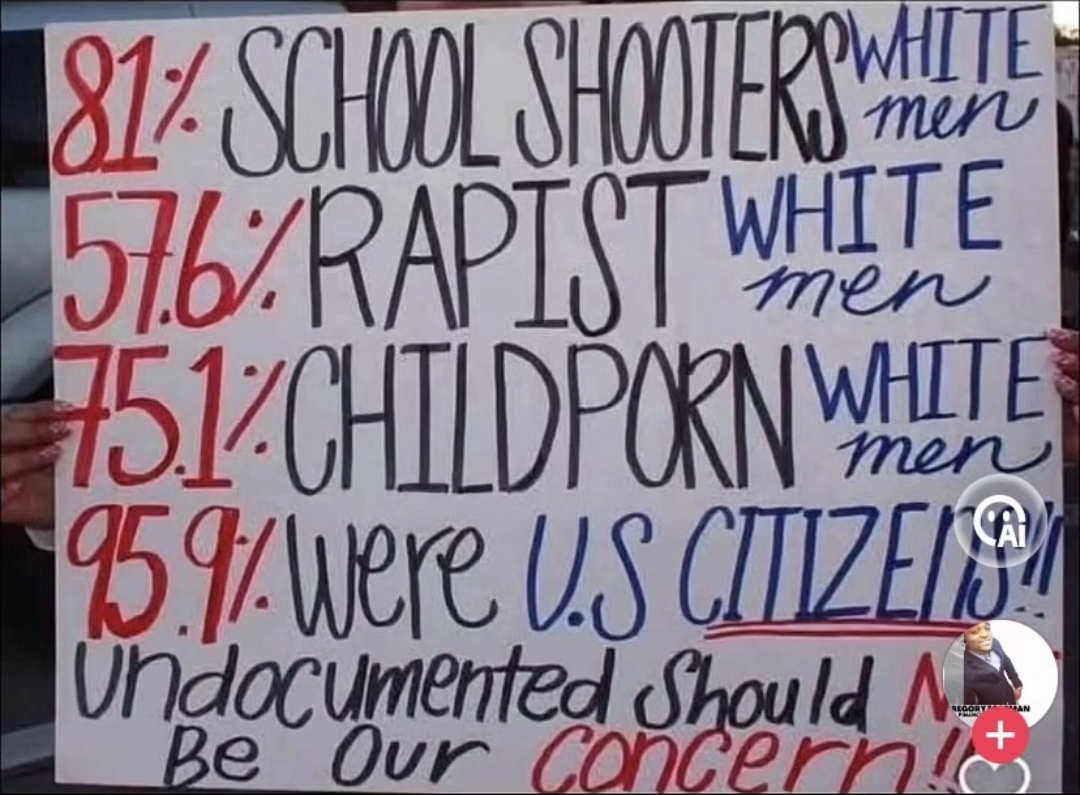 81% SCHOOL SHOOTERS WHITE men
57.6% RAPIST WHITE men
75.1% CHILD PORN WHITE men
95.9% Were U.S CITIZENS!!
Undocumented Should
Be Our Concern!!
Ai